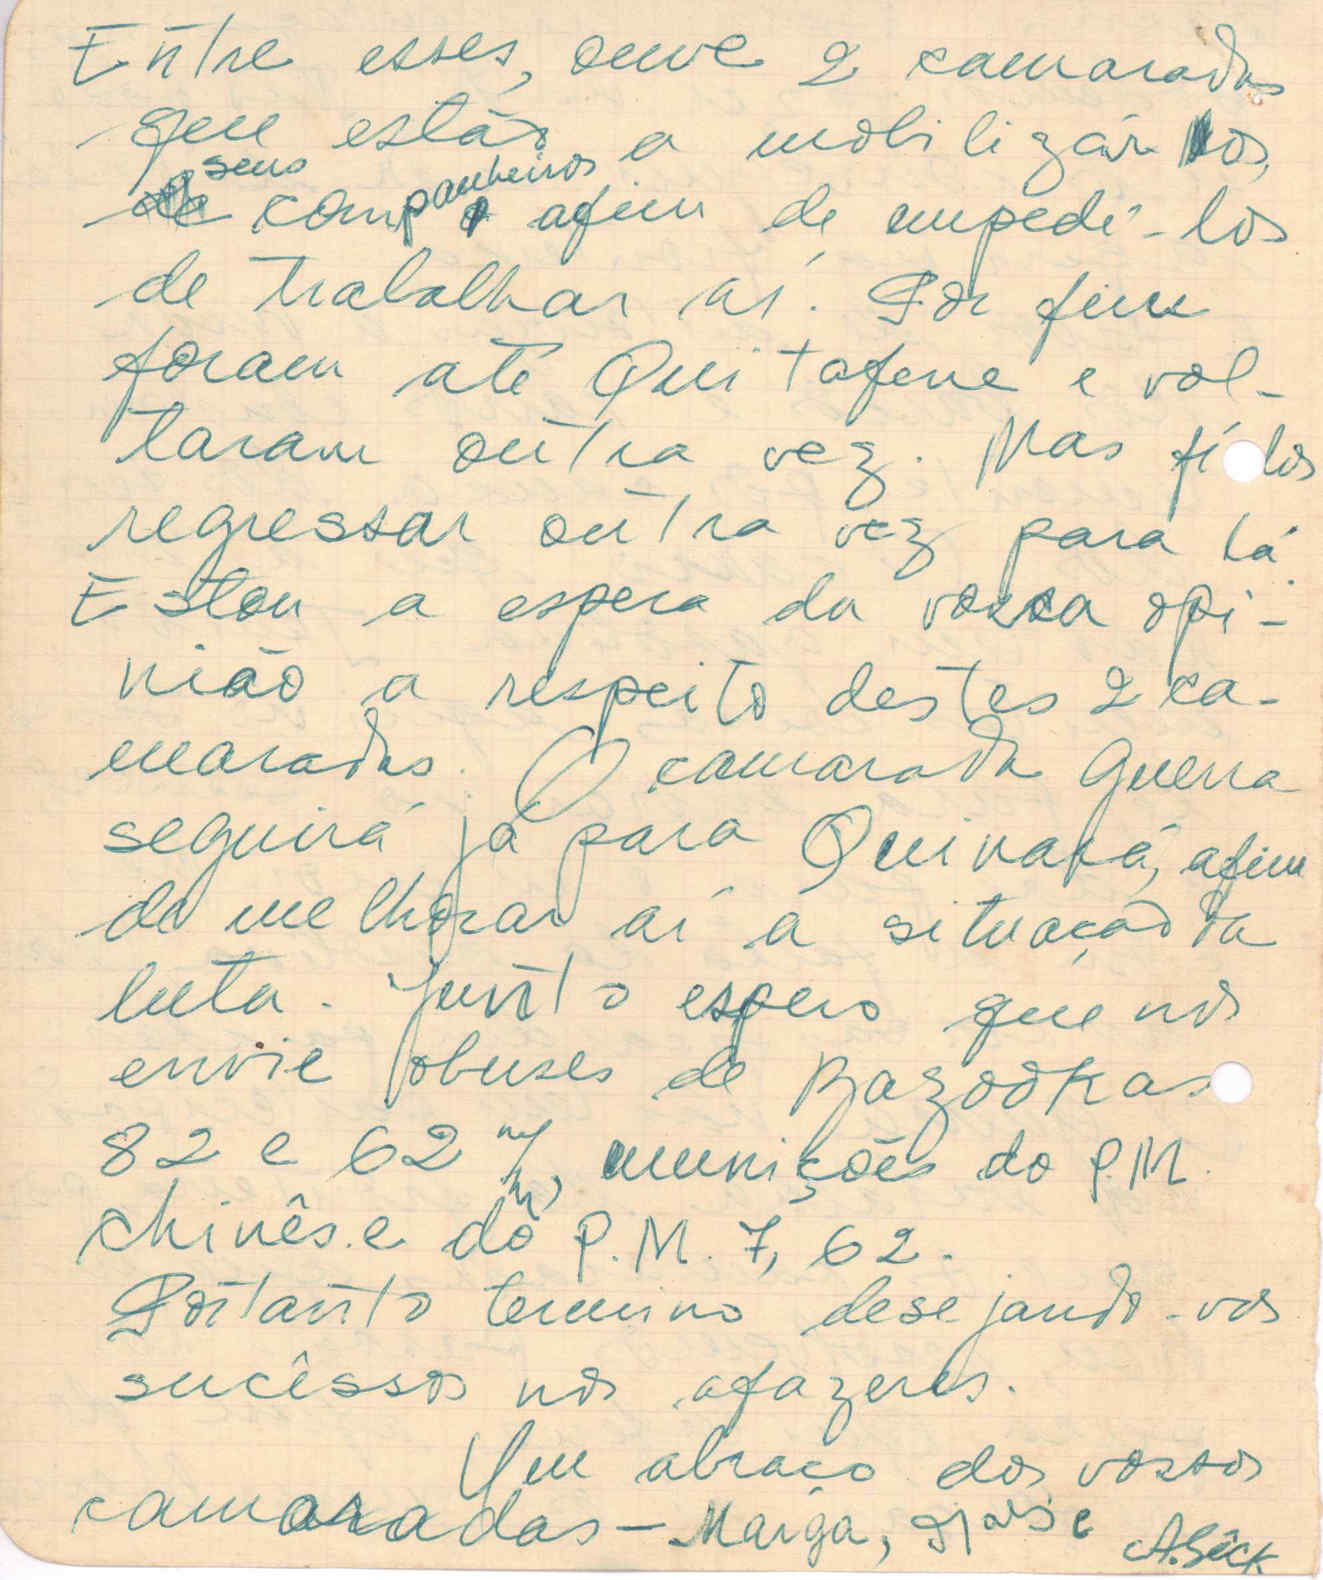 Entre esses, ouve 2 camaradas
que estão a mobilizár os
seus companheiros afim de empedi-los
de trabalhar aí. Por fim
foram até Quitafene e vol-
taram outra vez. Mas fí los
regressar outra vez para lá
Estou a espera da vossa opi-
nião a respeito destes 2 ca-
maradas. O camarada Guerra
seguirá já para Quinará, afim
de melhorar aí a situação da
luta. Junto espero que nos
envie obuses de Bazookas
82 e 62 m/m, munições do P.M.
chinês e do P.M. 7,62.
Portanto termino desejando-vos
sucêssos nos afazeres.
Um abraço dos vossos
camaradas - Maiga, e A. Sêck